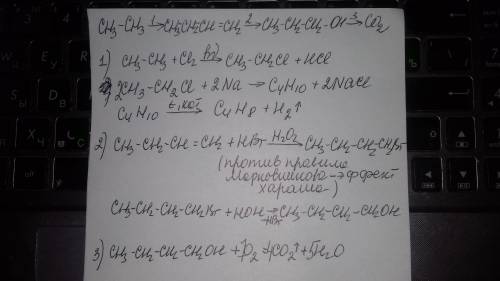 CH₃-CH₃ →1 CH₃CH₂CH=CH₂ →2 CH₃-CH₂-CH₂-OH →3 CO₂
1) CH₃-CH₃ + Cl₂ →hν CH₃-CH₂Cl + HCl
2CH₃-CH₂Cl + 2Na → C₄H₁₀ + 2NaCl
C₄H₁₀ →t, кат C₄H₈ + H₂↑
2) CH₃-CH₂-CH=CH₂ + HBr →H₂O₂ CH₃-CH₂-CH₂-CH₂Br
(против правила
Марковникова → эффект
хараша)
CH₃-CH₂-CH₂-CH₂Br + HOH →-HBr CH₃-CH₂-CH₂-CH₂OH
3) CH₃-CH₂-CH₂-CH₂OH + O₂ → 4CO₂↑ + 5H₂O